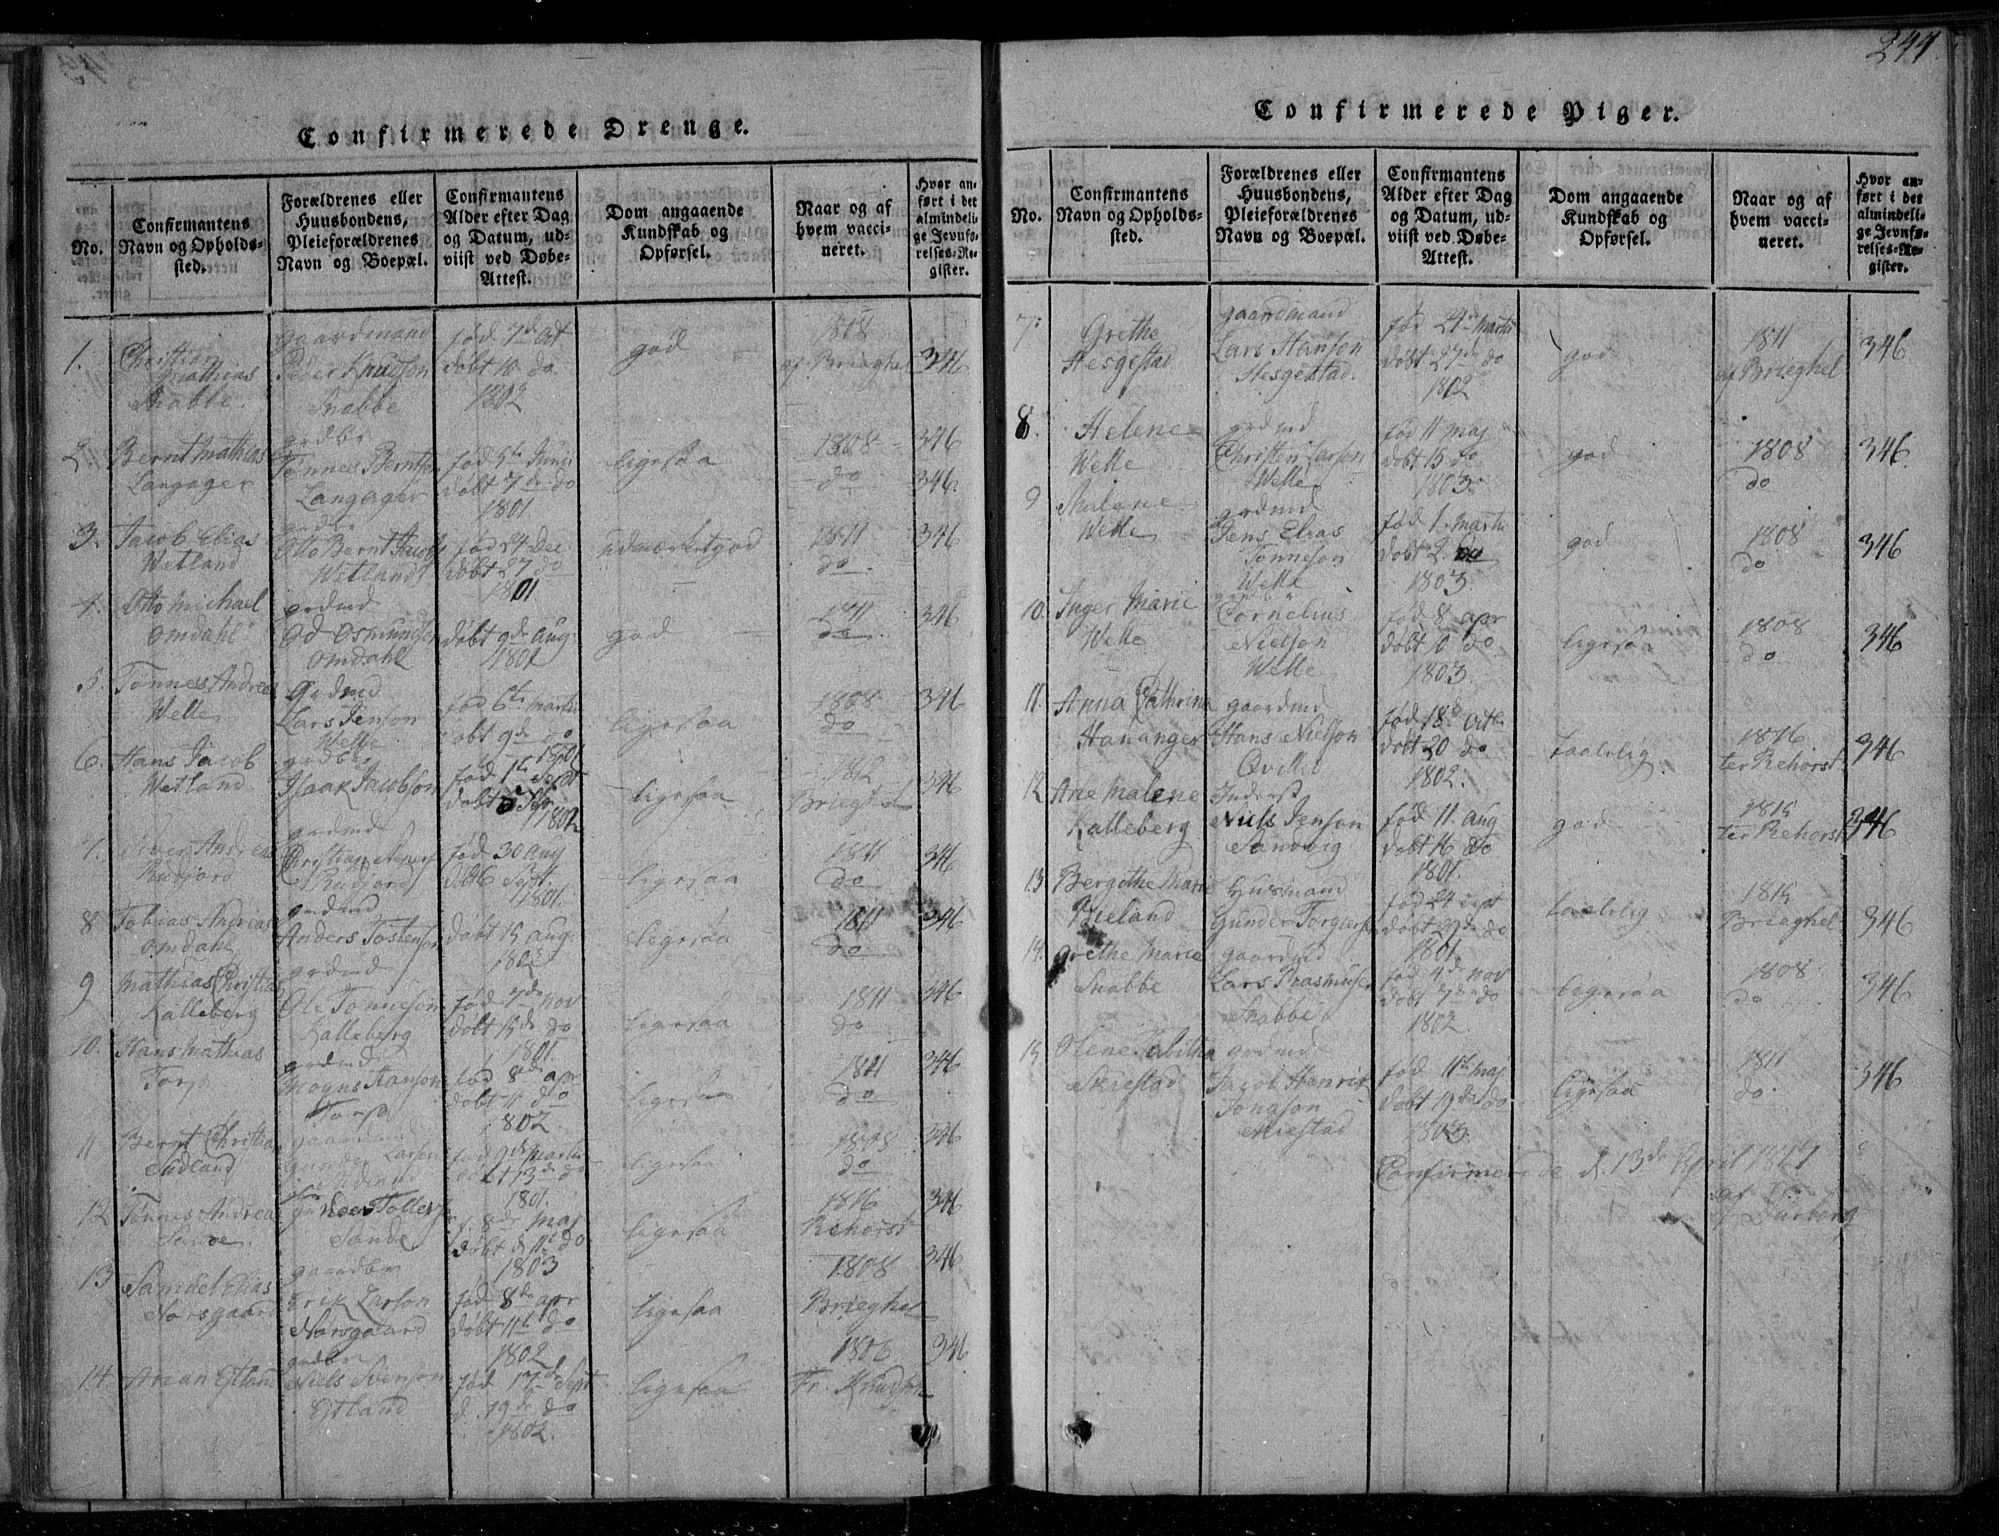 Confirmerede Drenge.
No.
Confirmantens Navn og Opholds-sted.
Forældrenes eller Huusbondens, Pleieforældrenes Navn og Boepæl.
Confirmantens Alder efter Dag og Datum, ud-viist ved Døbe-Attest.
Dom angaaende Kundskab og Opførsel.
Naar og af hvem vacci-neret.
Hvor an-ført i det almindeli-ge Jevnfø-relses-Re-gister.
1. Christian Mathias Stabbe. gaardmand Peder Knudson Stabbe fød 7de døbt 10 do 1802 god 1808 af Brieghel 346
2. Bernt Mathias Langager grdbr Tønnes Berntsn Langager fød 5te Juni døbt 7de do 1801 ligesaa 1808 do 346 346.
3. Jacob Elias Wetland grdbr Otto Bernt Jacobs Wetland fød 24 Dec døbt 27 do 1801 udmærket god 1811 do 346
4. Otto Michael Omdahl grdmd Od Osmundsen Omdahl døbt 9de aug 1801 god 1811 do. 346
5. Tønnes Andreas Welle Grdmd Lars Jenson Welle fød 6te marti døbt 9de do ligesaa 1808 do 346
6. Hans Jacob Wetland grdbr Isaak Jacobson fød 1te Sept døbt 1802 ligesaa 1812 Brieghel 346
7. Andreas Rudjord grdmd Christian Rudjord fød 30 aug døbt 6 Sept. 1801. ligesaa 1811 do. 346
8 Tobias Andreas Omdahl grdmd Anders Tostenson døbt 15 aug. 1802 ligesaa 1811 do 346
9 Mathias Christian Kalleberg grdmd Ole Tønneson Kalleberg fød 7de nov døbt 15de do 1801. ligesaa 1811 do 346
10. Hans Mathias Torp grdmd Mogns Hanson Torp fød 8de apr døbt 11 do 1802. ligesaa 1811 do 346
11 Bernt Christian Sudland gaardmd Gunder Larson Sudland fød 9de Martii døbt 13de do 1801. ligesaa 1808 do 346
12 Tønnes Andreas Sande Sande f. 8de Maj døbt d 11te do 1803 ligesaa 1816 Rehorst 346
13 Samuel Elias Norsgaard gaardbr Erik Larson Norsgaard fød 8de apr døbt 11te do 1802 ligesaa 1808 Brieghel 346
14. Østland grdbr Niels Svenson Østland fød 17de Sept d. 19de do 1802. ligesaa Fr. Knudson 346
244
Confirmerede Piger.
No.
Confirmantens Navn og Opholds-sted.
Forældrenes eller Huusbondens, Pleieforældrenes Navn og Boepæl.
Confirmantens Alder efter Dag og Datum, ud-viist ved Døbe-Attest.
Dom angaaende Kundskab og Opførsel.
Naar og af hvem vacci-neret.
Hvor an-ført i det almindeli-ge Jevnfø-relses-Re-gister.
7. Grethe Hesgestad gaardmand Lars Hanson Hesgestad. fød 24de marti døbt 27de do 1802 god 1811 af Brieghel 346
8. Helene Welle grdmd Christen Larson Welle fød 11 maj døbt 15 do 1803. god 1808 do 346.
9 Malene Welle grdmd Jens Elias Tønneson Welle fød 1. marti døbt 2. do 1803. god 1808 do 346
10. Inger Marie Welle grdbr Cornelius Nielson Welle fød 8 apr døbt 10 do 1803. ligesaa 1808 do 346
11. Anna Cathrina Hananger gaardmd Hans Nielson fød 18. octbr døbt 20 do 1802. taalelig 1816 ter Rehorst 346
12 Ane Malene Kalleberg Inderst Niels Jenson Sandvig fød 11. aug døbt 16 do 1801. god 1815 ter Rehorst 346
13 Bergithe Marie Bieland Husmand Gunder Torgiersen fød 24 sept døbt 29de do 1801. taalelig 1815 Brieghel 346
14. Grethe Marie Stabbe gaardmd Lars Rasmusen Stabbe fød 4de nov døbt 7de do 1802. ligesaa 1808 do 346
15 Olene Tabitha Skiestad grdmd Jacob Henrik Jonason Skiestad fød 11te maj døbt 19de do 1803. ligesaa 1811 do. 346
Confirmerede d. 13de April 1817
af